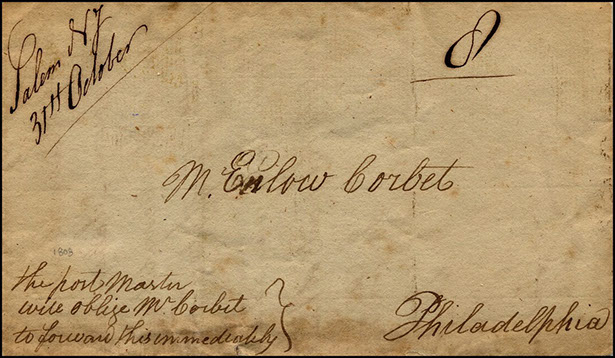 Salem NJ
31st October
8
M. Enlow Corbet
1803
the post Master
will oblige Mr Corbet
to forward this immediately
Philadelphia